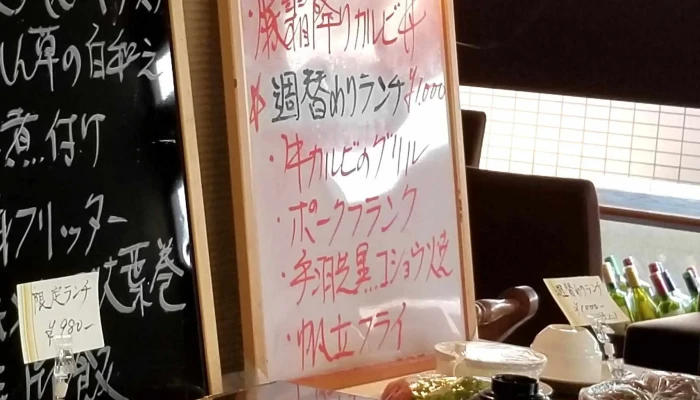 しん草の白和え
煮付け
フリッター
葉巻
飯
限定ランチ
¥980-
・豚霜降りカルビ丼
週替わりランチ ¥1,000
・牛カルビのグリル
・ポークフランク
・手羽先黒コショウ焼
・帆立フライ
週替わりランチ
¥1000-